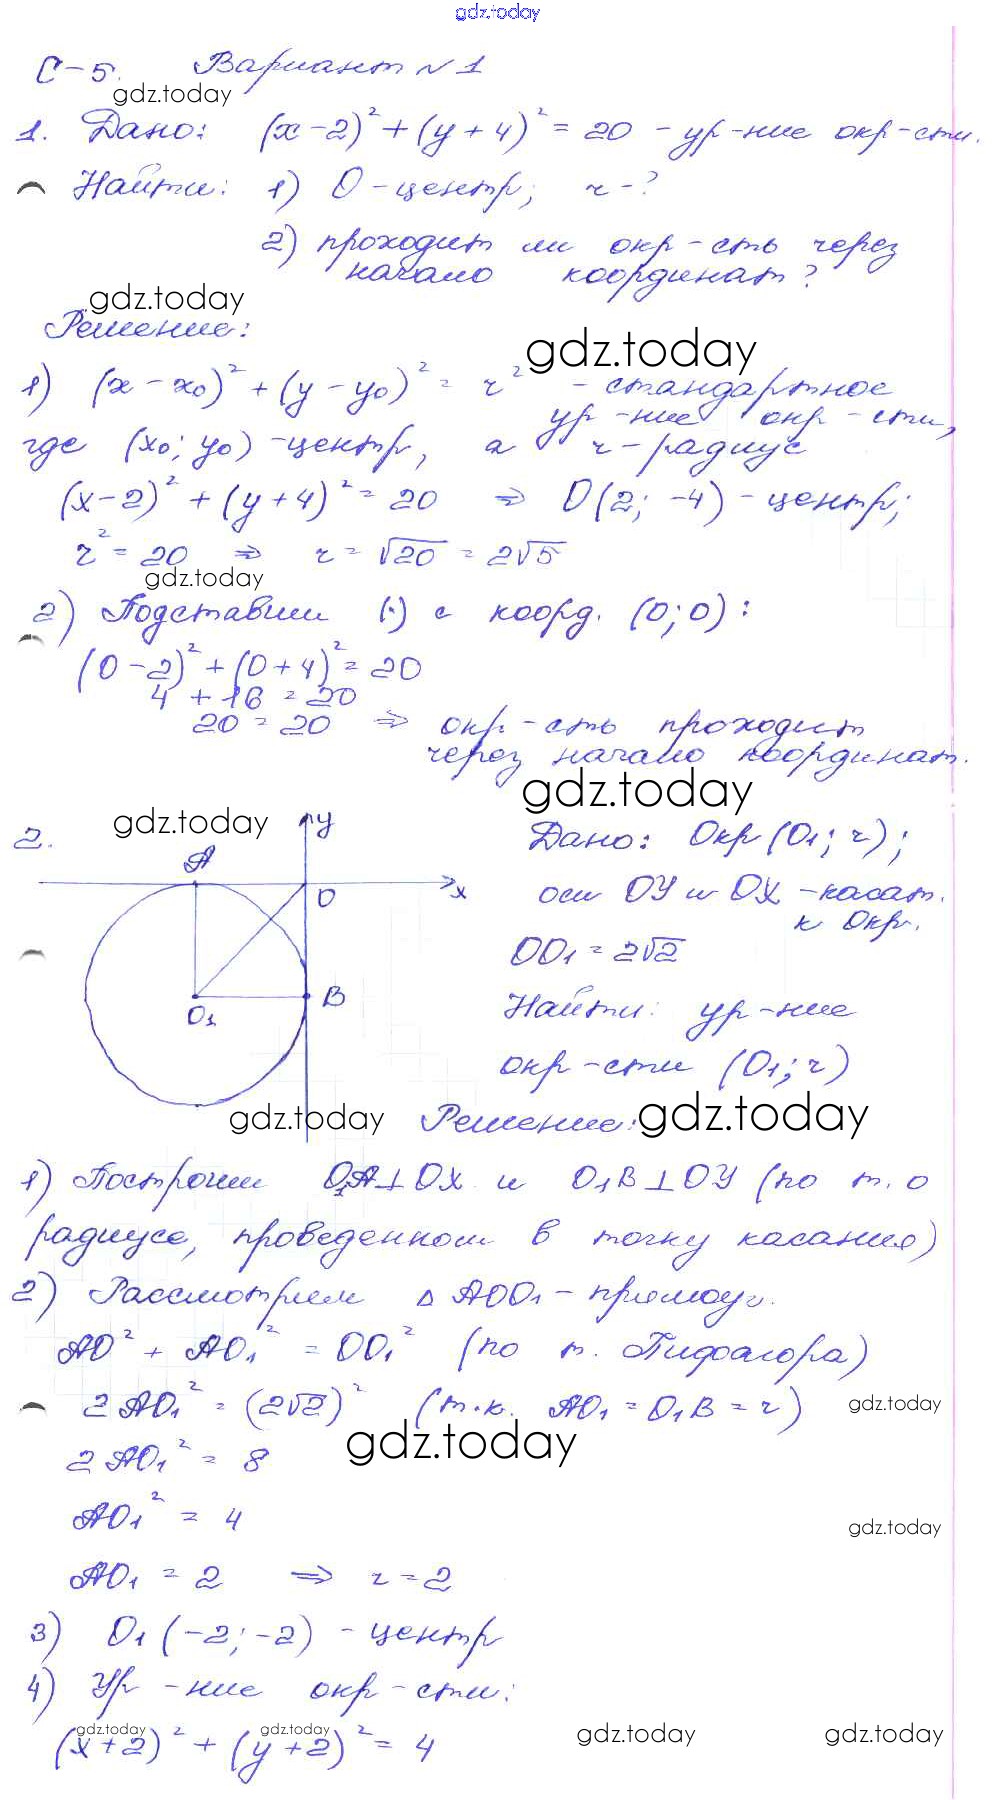 gdz.today
С-5. Вариант №1
gdz.today
1. Дано: (x-2)²+(y+4)²=20 - ур-ние окр-сти.
Найти: 1) О-центр; r-?
2) проходит ли окр-сть через
начало координат?
gdz.today
Решение:
gdz.today
1) (x-x₀)²+(y-y₀)²=r² - стандартное
ур-ние окр-сти,
где (x₀; y₀)-центр, а r-радиус
(x-2)²+(y+4)²=20 ⇒ O(2; -4)-центр;
r²=20 ⇒ r=√20=2√5
gdz.today
2) Подставим (·) с коорд. (0;0):
(0-2)²+(0+4)²=20
4+16=20
20=20 ⇒ окр-сть проходит
через начало координат.
gdz.today
gdz.today
2.
A
y
x
O
B
O₁
Дано: Окр(O₁; r);
оси OY и OX -касат.
к Окр.
OO₁=2√2
Найти: ур-ние
окр-сти (O₁; r)
gdz.today
Решение:
gdz.today
1) Построим O₁A⊥OX и O₁B⊥OY (по т. о
радиусе, проведенном в точку касания)
2) Рассмотрим △AOO₁-прямоуг.
AO²+AO₁²=OO₁² (по т. Пифагора)
2AO₁²=(2√2)² (т.к. AO₁=O₁B=r)
gdz.today
gdz.today
2AO₁²=8
AO₁²=4
gdz.today
AO₁=2 ⇒ r=2
3) O₁(-2;-2)-центр
4) Ур-ние окр-сти:
gdz.today
gdz.today
gdz.today
gdz.today
(x+2)²+(y+2)²=4